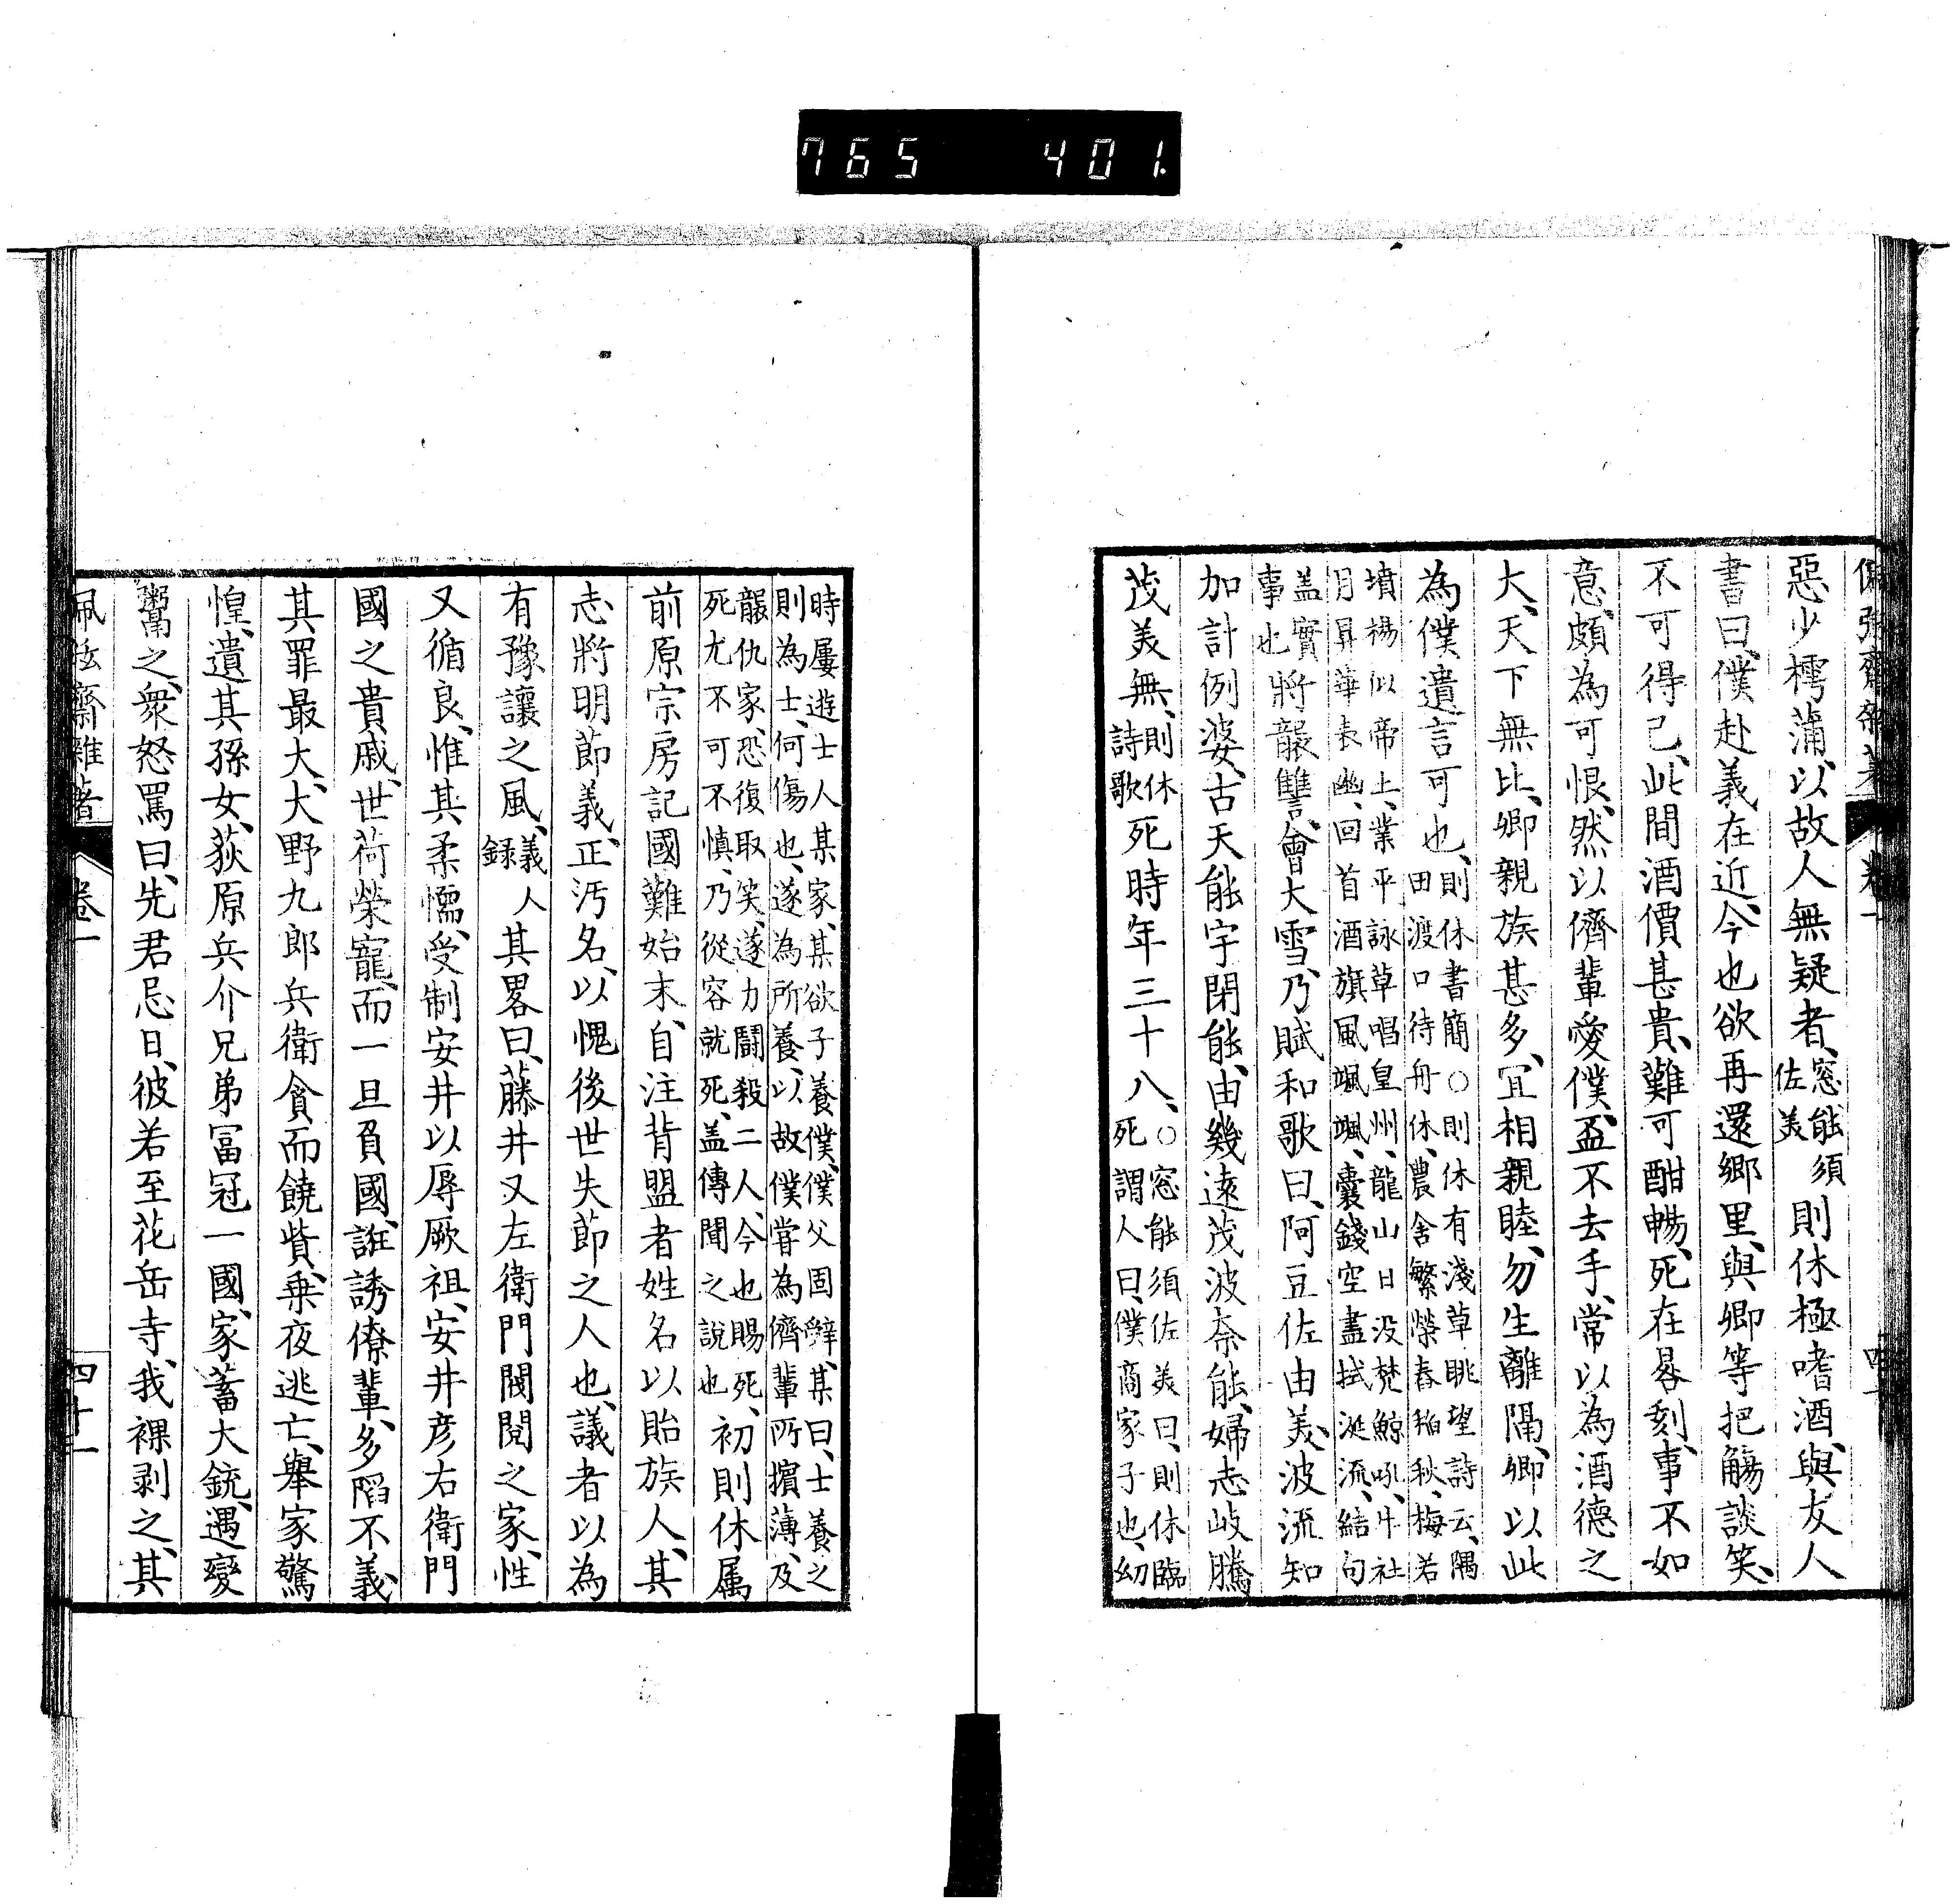 765 401.
惡少樗蒲、以故人無疑者、窓能須佐美則休極嗜酒、與友人
書曰、僕赴義在近、今也欲再還鄉里、與卿等把觴談笑、
不可得已、此間酒價甚貴、難可酣暢、死在晷刻、事不如
意、頗為可恨、然以儕輩愛僕、盃不去手、常以為酒德之
大、天下無比、卿親族甚多、冝相親睦、勿生離隔、卿以此
為僕遺言可也、則休書簡○則休有淺草眺望詩云、隅田渡口待舟休、農舍繁榮春稲秋、梅若
墳楊似帝土、業平詠草唱皇州、龍山日没梵鯨吼、牛社月昇華表幽、回首酒旗風颯颯、囊錢空盡拭涎流、結句
盖實事也將龂讐、會大雪、乃賦和歌曰、阿豆佐由美、波流知
加計例婆、古天能宇閉能、由幾遠茂波奈能、婦志岐騰
茂美無、則休詩歌死時年三十八、○窓能須佐美曰、則休臨死謂人曰、僕商家子也、幼
時屢遊士人某家、某欲子養僕、僕父固辭、某曰、士養之則為士、何傷也、遂為所養、以故僕嘗為儕輩所擯薄、及
龂仇家、恐復取笑、遂力鬪殺二人、今也賜死、死尤不可不慎、乃從容就死、盖傳聞之說也、初則休属
前原宗房記國難始末、自注背盟者姓名以貽族人、其
志將明節義、正汚名、以愧後世失節之人也、議者以為
有豫讓之風、義人録其畧曰、藤井又左衛門閥閱之家、性
又循良、惟其柔懦、受制安井以辱厥祖、安井彦右衛門
國之貴戚、世荷榮寵、而一旦負國、誑誘僚輩、多陷不義、
其罪最大、大野九郎兵衛貪而饒貲、乗夜逃亡、舉家驚
惶、遺其孫女、荻原兵介兄弟富冠一國、家蓄大銃、遇變
鬻之、衆怒罵曰、先君忌日、彼若至花岳寺、我裸剥之、其
齋雜著 卷一 四十一